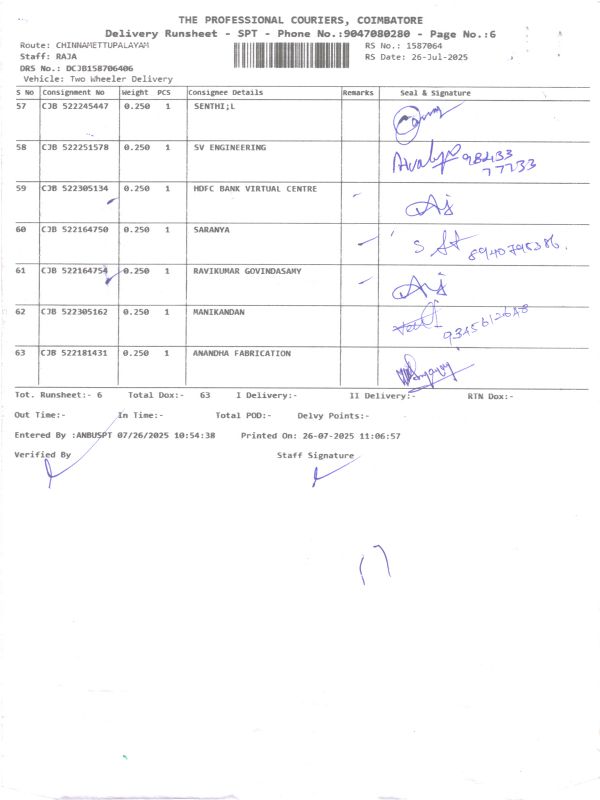 THE PROFESSIONAL COURIERS, COIMBATORE
Delivery Runsheet - SPT - Phone No.:9047080280 - Page No.:6
Route: CHINNAMETTUPALAYAM RS No.: 1587064
Staff: RAJA RS Date: 26-Jul-2025
DRS No.: DCJB158706406
Vehicle: Two Wheeler Delivery
S No Consignment No Weight PCS Consignee Details Remarks Seal & Signature
57 CJB 522245447 0.250 1 SENTHI;L
58 CJB 522251578 0.250 1 SV ENGINEERING 98433
77233
59 CJB 522305134 0.250 1 HDFC BANK VIRTUAL CENTRE
60 CJB 522164750 0.250 1 SARANYA 8940795386.
61 CJB 522164754 0.250 1 RAVIKUMAR GOVINDASAMY
62 CJB 522305162 0.250 1 MANIKANDAN
63 CJB 522181431 0.250 1 ANANDHA FABRICATION
Tot. Runsheet:- 6 Total Dox:- 63 I Delivery:- II Delivery:- RTN Dox:-
Out Time:- In Time:- Total POD:- Delvy Points:-
Entered By :ANBUSPT 07/26/2025 10:54:38 Printed On: 26-07-2025 11:06:57
Verified By Staff Signature